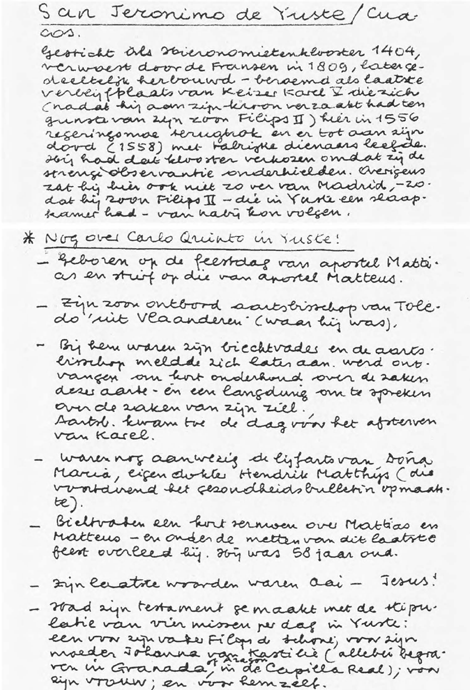 San Jeronimo de Yuste / Cua
cos.
Gesticht als Hieronomietenklooster 1404,
verwoest door de Fransen in 1809, later ge-
deeltelijk herbouwd - beroemd als laatste
verblijfplaats van Keizer Karel V die zich
(nadat hij aan zijn kroon verzaakt had ten
gunste van zijn zoon Filips II) hier in 1556
regeringsmoe terugtrok en er tot aan zijn
dood (1558) met talrijke dienaers leefde.
Hij had dat klooster verkozen omdat zij de
strenge observantie onderhielden. Overigens
zat hij hier ook niet zo ver van Madrid, - zo-
dat hij zoon Filips II - die in Yuste een slaap-
kamer had - van nabij kon volgen.
* Nog over Carlo Quinto in Yuste!
- Geboren op de feestdag van apostel Matti-
as en stierf op die van apostel Matteus.
- Zijn zoon ontbood aartsbisschop van Tole-
do 'uit Vlaanderen' (waar hij was).
- Bij hem waren zijn biechtvader en de aarts-
bisschop meldde zich later aan. werd ont-
vangen om kort onderhoud over de zaken
dezer aarde - en een langdurig om te spreken
over de zaken van zijn ziel.
Aartsb. kwam toe de dag vóór het afsterven
van Karel.
- Waren nog aanwezig de lijfarts van Doña
Maria, eigen dokter Hendrik Matthijs (die
voortdurend het gezondheidsbulletin opmaak-
te).
- Biechtvader een kort sermoen over Mattias en
Matteus - en onder de metten van dit laatste
feest overleed hij. Hij was 58 jaar oud.
- Zijn laatste woorden waren Aai - Jesus!
- Had zijn testament gemaakt met de stipu-
latie van vier missen per dag in Yuste:
een voor zijn vader Filips de Schone; voor zijn
moeder Johanna van Kastilië (allebei begra-
ven in Granada, in de Capilla Real); voor
zijn vrouw; en voor hemzelf.